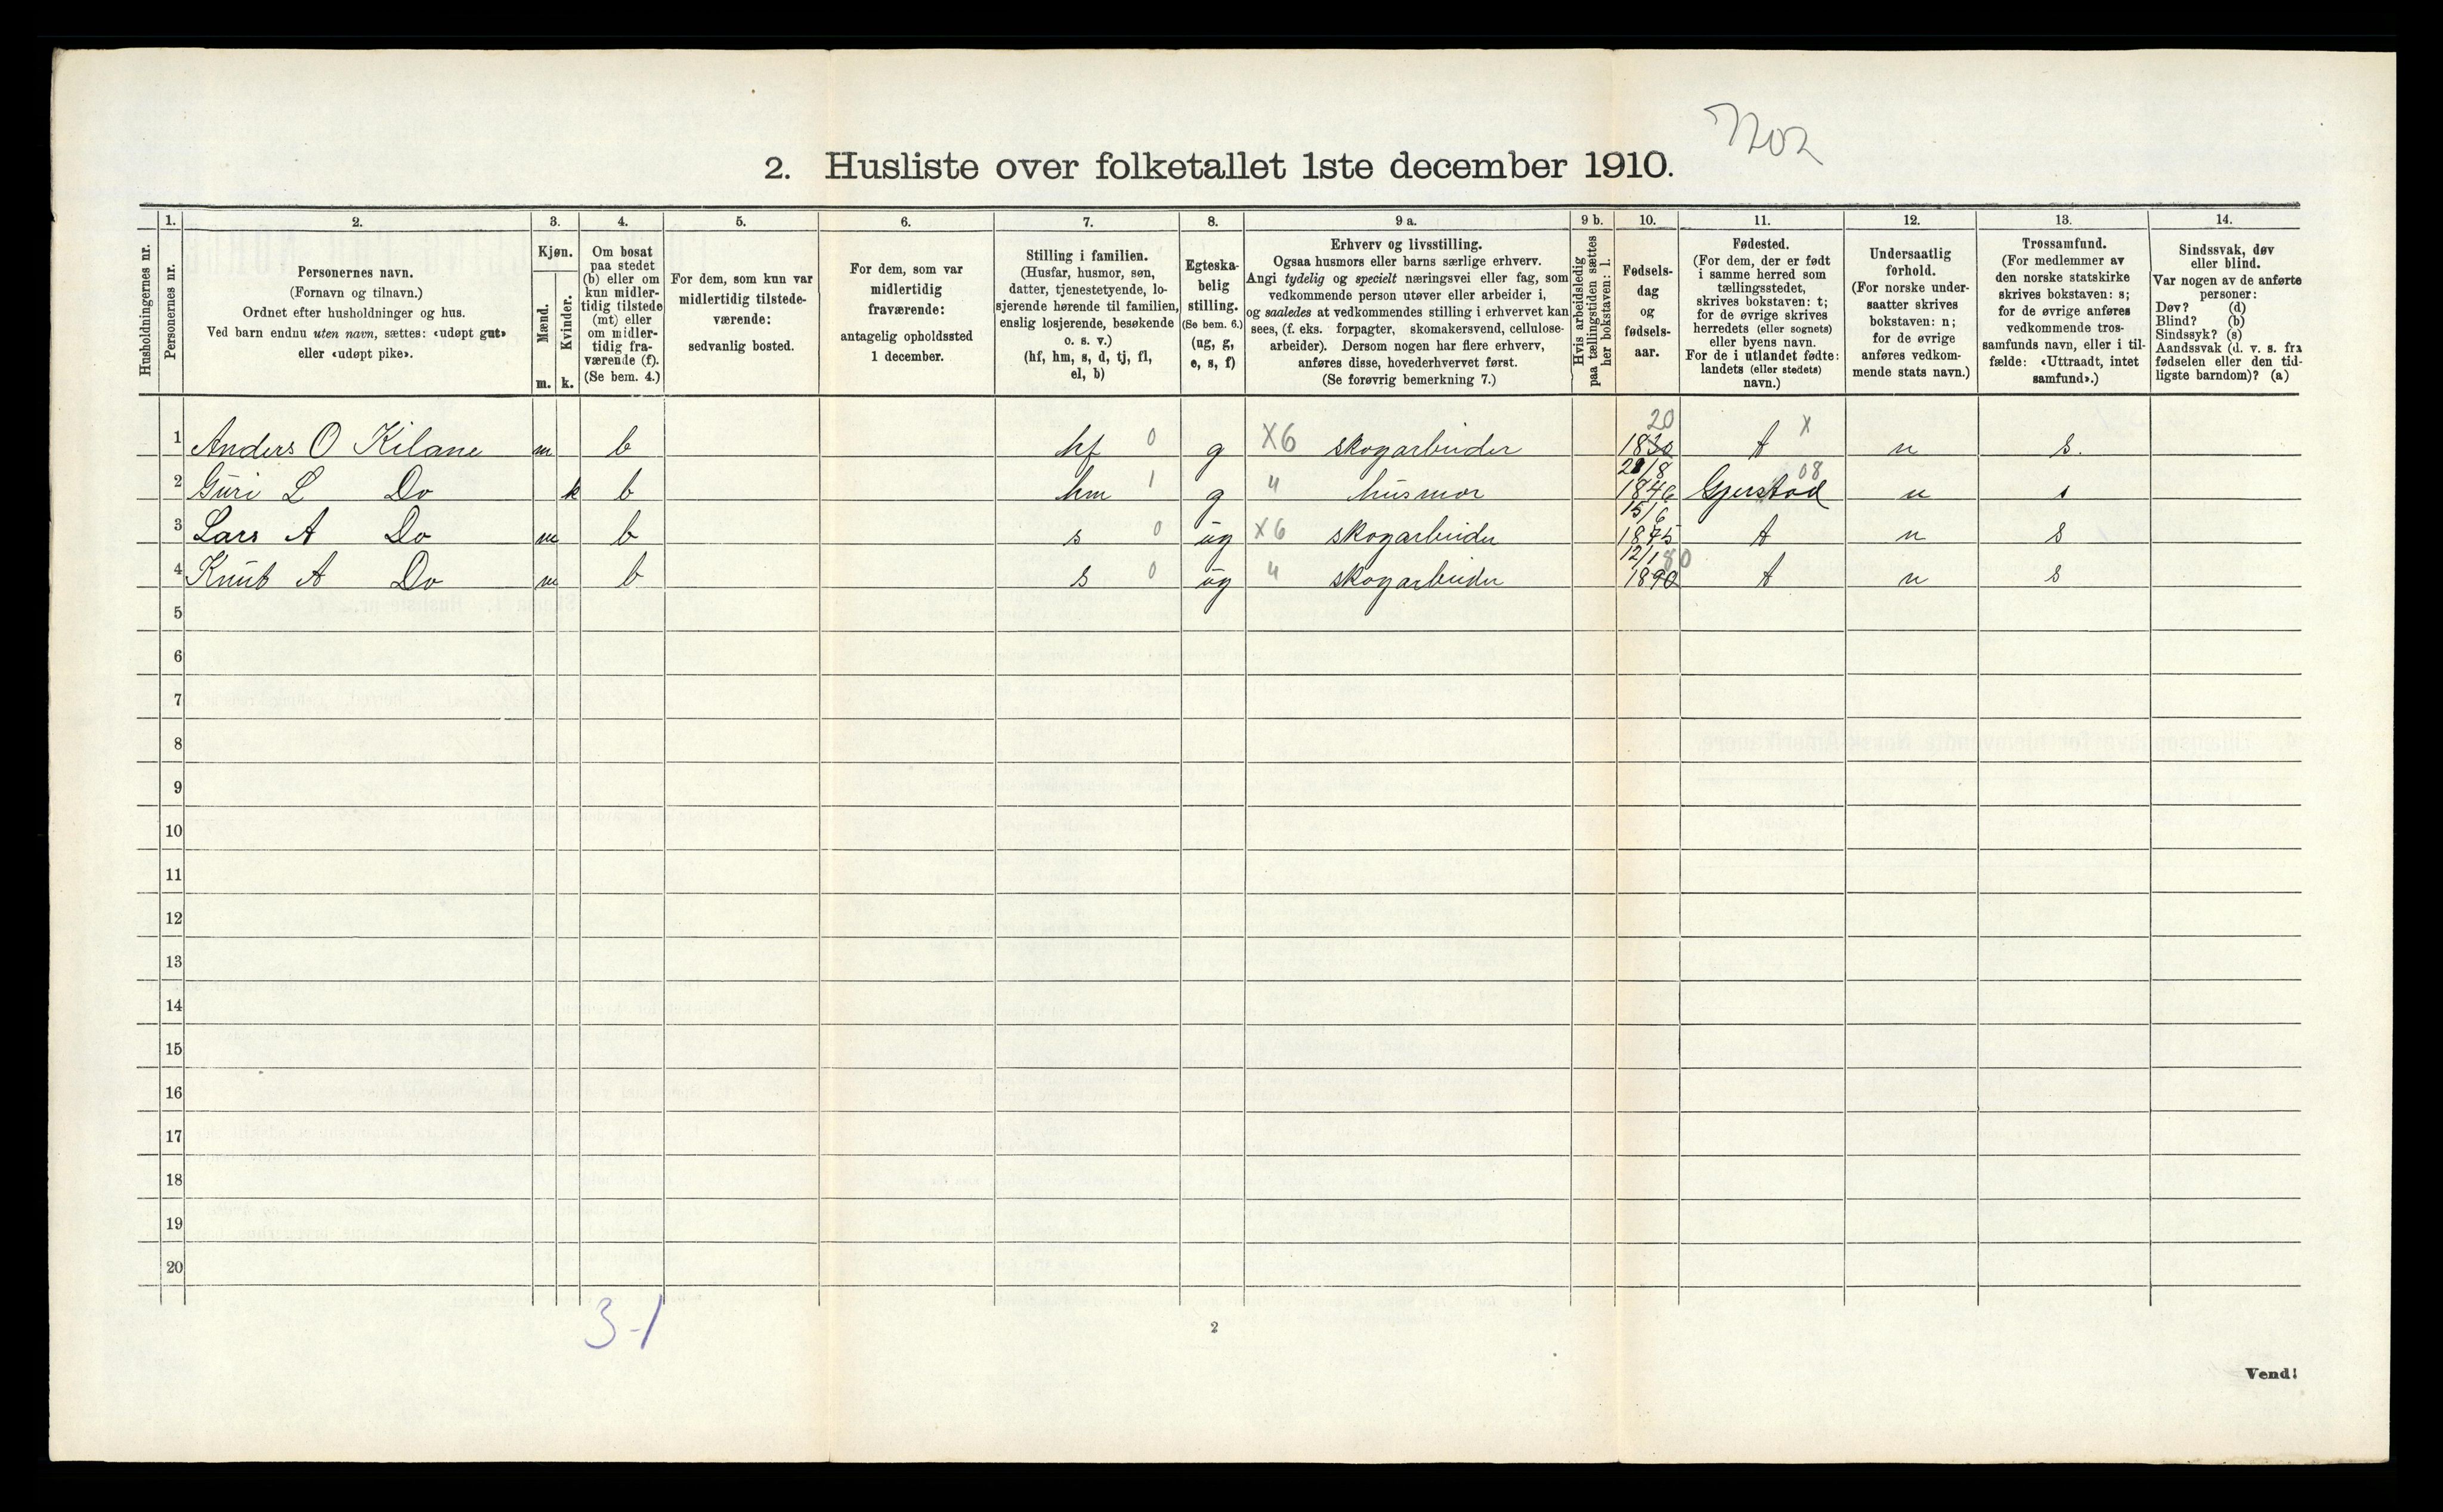 7202
2. Husliste over folketallet 1ste december 1910.
Husholdningernes nr.
1. Personernes nr.
2. Personernes navn.
(Fornavn og tilnavn.)
Ordnet efter husholdninger og hus.
Ved barn endnu uten navn, sættes: «udøpt gut»
eller «udøpt pike».
3. Kjøn.
Mænd. m.
Kvinder. k.
4. Om bosat
paa stedet
(b) eller om
kun midler-
tidig tilstede
(mt) eller
om midler-
tidig fra-
værende (f).
(Se bem. 4.)
5. For dem, som kun var
midlertidig tilstede-
værende:
sedvanlig bosted.
6. For dem, som var
midlertidig
fraværende:
antagelig opholdssted
1 december.
7. Stilling i familien.
(Husfar, husmor, søn,
datter, tjenestetyende, lo-
sjerende hørende til familien,
enslig losjerende, besøkende
o. s. v.)
(hf, hm, s, d, tj, fl,
el, b)
8. Egteska-
belig
stilling.
(Se bem. 6.)
(ug, g,
e, s, f)
9 a. Erhverv og livsstilling.
Ogsaa husmors eller barns særlige erhverv.
Angi tydelig og specielt næringsvei eller fag, som
vedkommende person utøver eller arbeider i,
og saaledes at vedkommendes stilling i erhvervet kan
sees, (f. eks. forpagter, skomakersvend, cellulose-
arbeider). Dersom nogen har flere erhverv,
anføres disse, hovederhvervet først.
(Se forøvrig bemerkning 7.)
9 b. Hvis arbeidsledig
paa tællingstiden sættes
her bokstaven: l.
10. Fødsels-
dag
og
fødsels-
aar.
11. Fødested.
(For dem, der er født
i samme herred som
tællingsstedet,
skrives bokstaven: t;
for de øvrige skrives
herredets (eller sognets)
eller byens navn.
For de i utlandet fødte:
landets (eller stedets)
navn.)
12. Undersaatlig
forhold.
(For norske under-
saatter skrives
bokstaven: n;
for de øvrige
anføres vedkom-
mende stats navn.)
13. Trossamfund.
(For medlemmer av
den norske statskirke
skrives bokstaven: s;
for de øvrige anføres
vedkommende tros-
samfunds navn, eller i til-
fælde: «Uttraadt, intet
samfund».)
14. Sindssvak, døv
eller blind.
Var nogen av de anførte
personer:
Døv? (d)
Blind? (b)
Sindssyk? (s)
Aandssvak (d. v. s. fra
fødselen eller den tid-
ligste barndom)? (a)
1 Anders O Kilane m b hf 0 g X6 skogarbeider 20 1830 t X n s.
2 Guri L Do k b hm 1 g " husmor 28/8 1846 Gjerstad 08 n s
3 Lars A Do m b s 0 ug X6 skogarbeider 15/6 1875 t n s
4 Knut A Do m b s 0 ug " skogarbeider 12/1 80 1890 t n s
5
6
7
8
9
10
11
12
13
14
15
16
17
18
19
20
3-1
2
Vend!